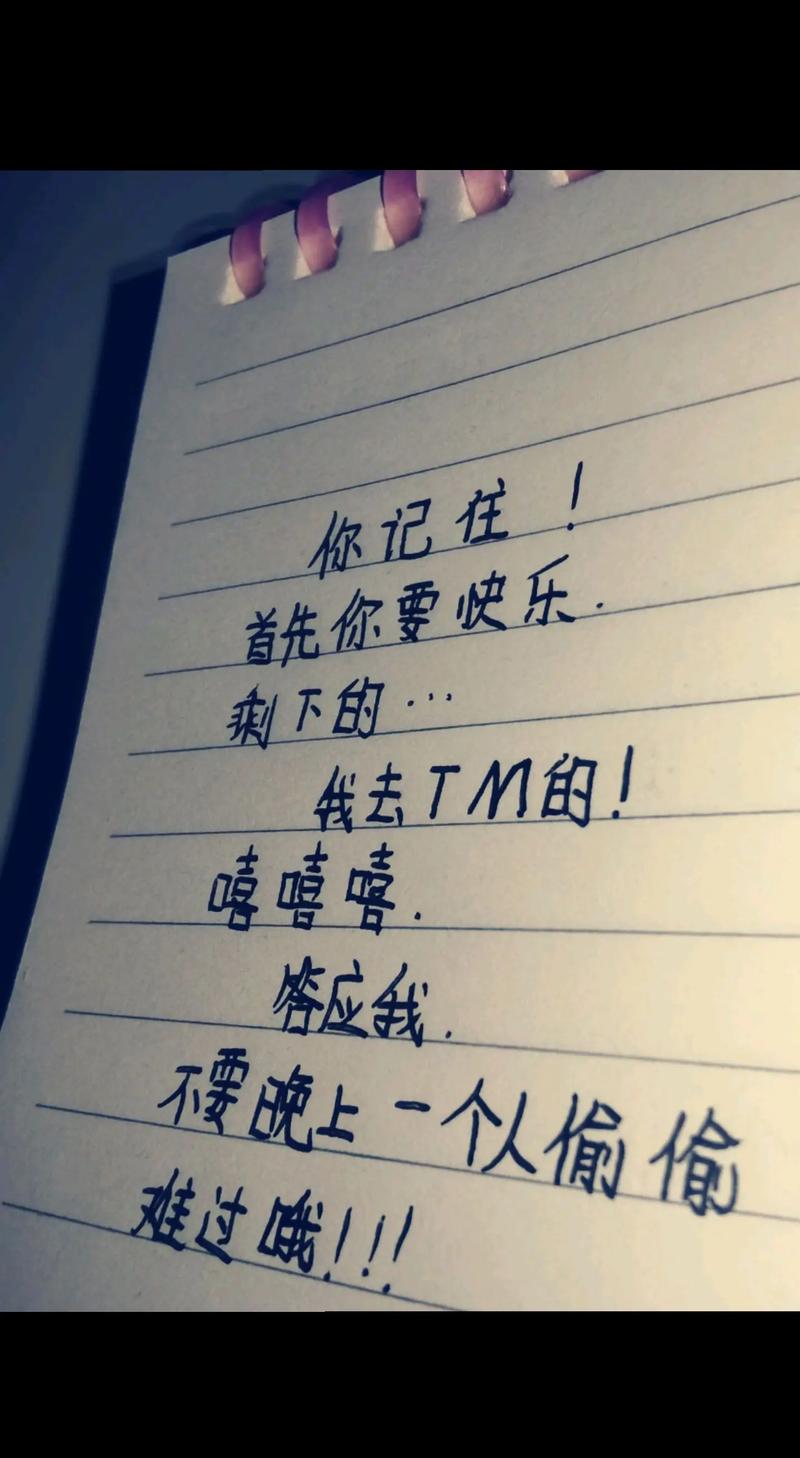 你记住！
首先你要快乐.
剩下的…
我去TM的！
嘻嘻嘻.
答应我.
不要晚上一个人偷偷
难过哦！！！